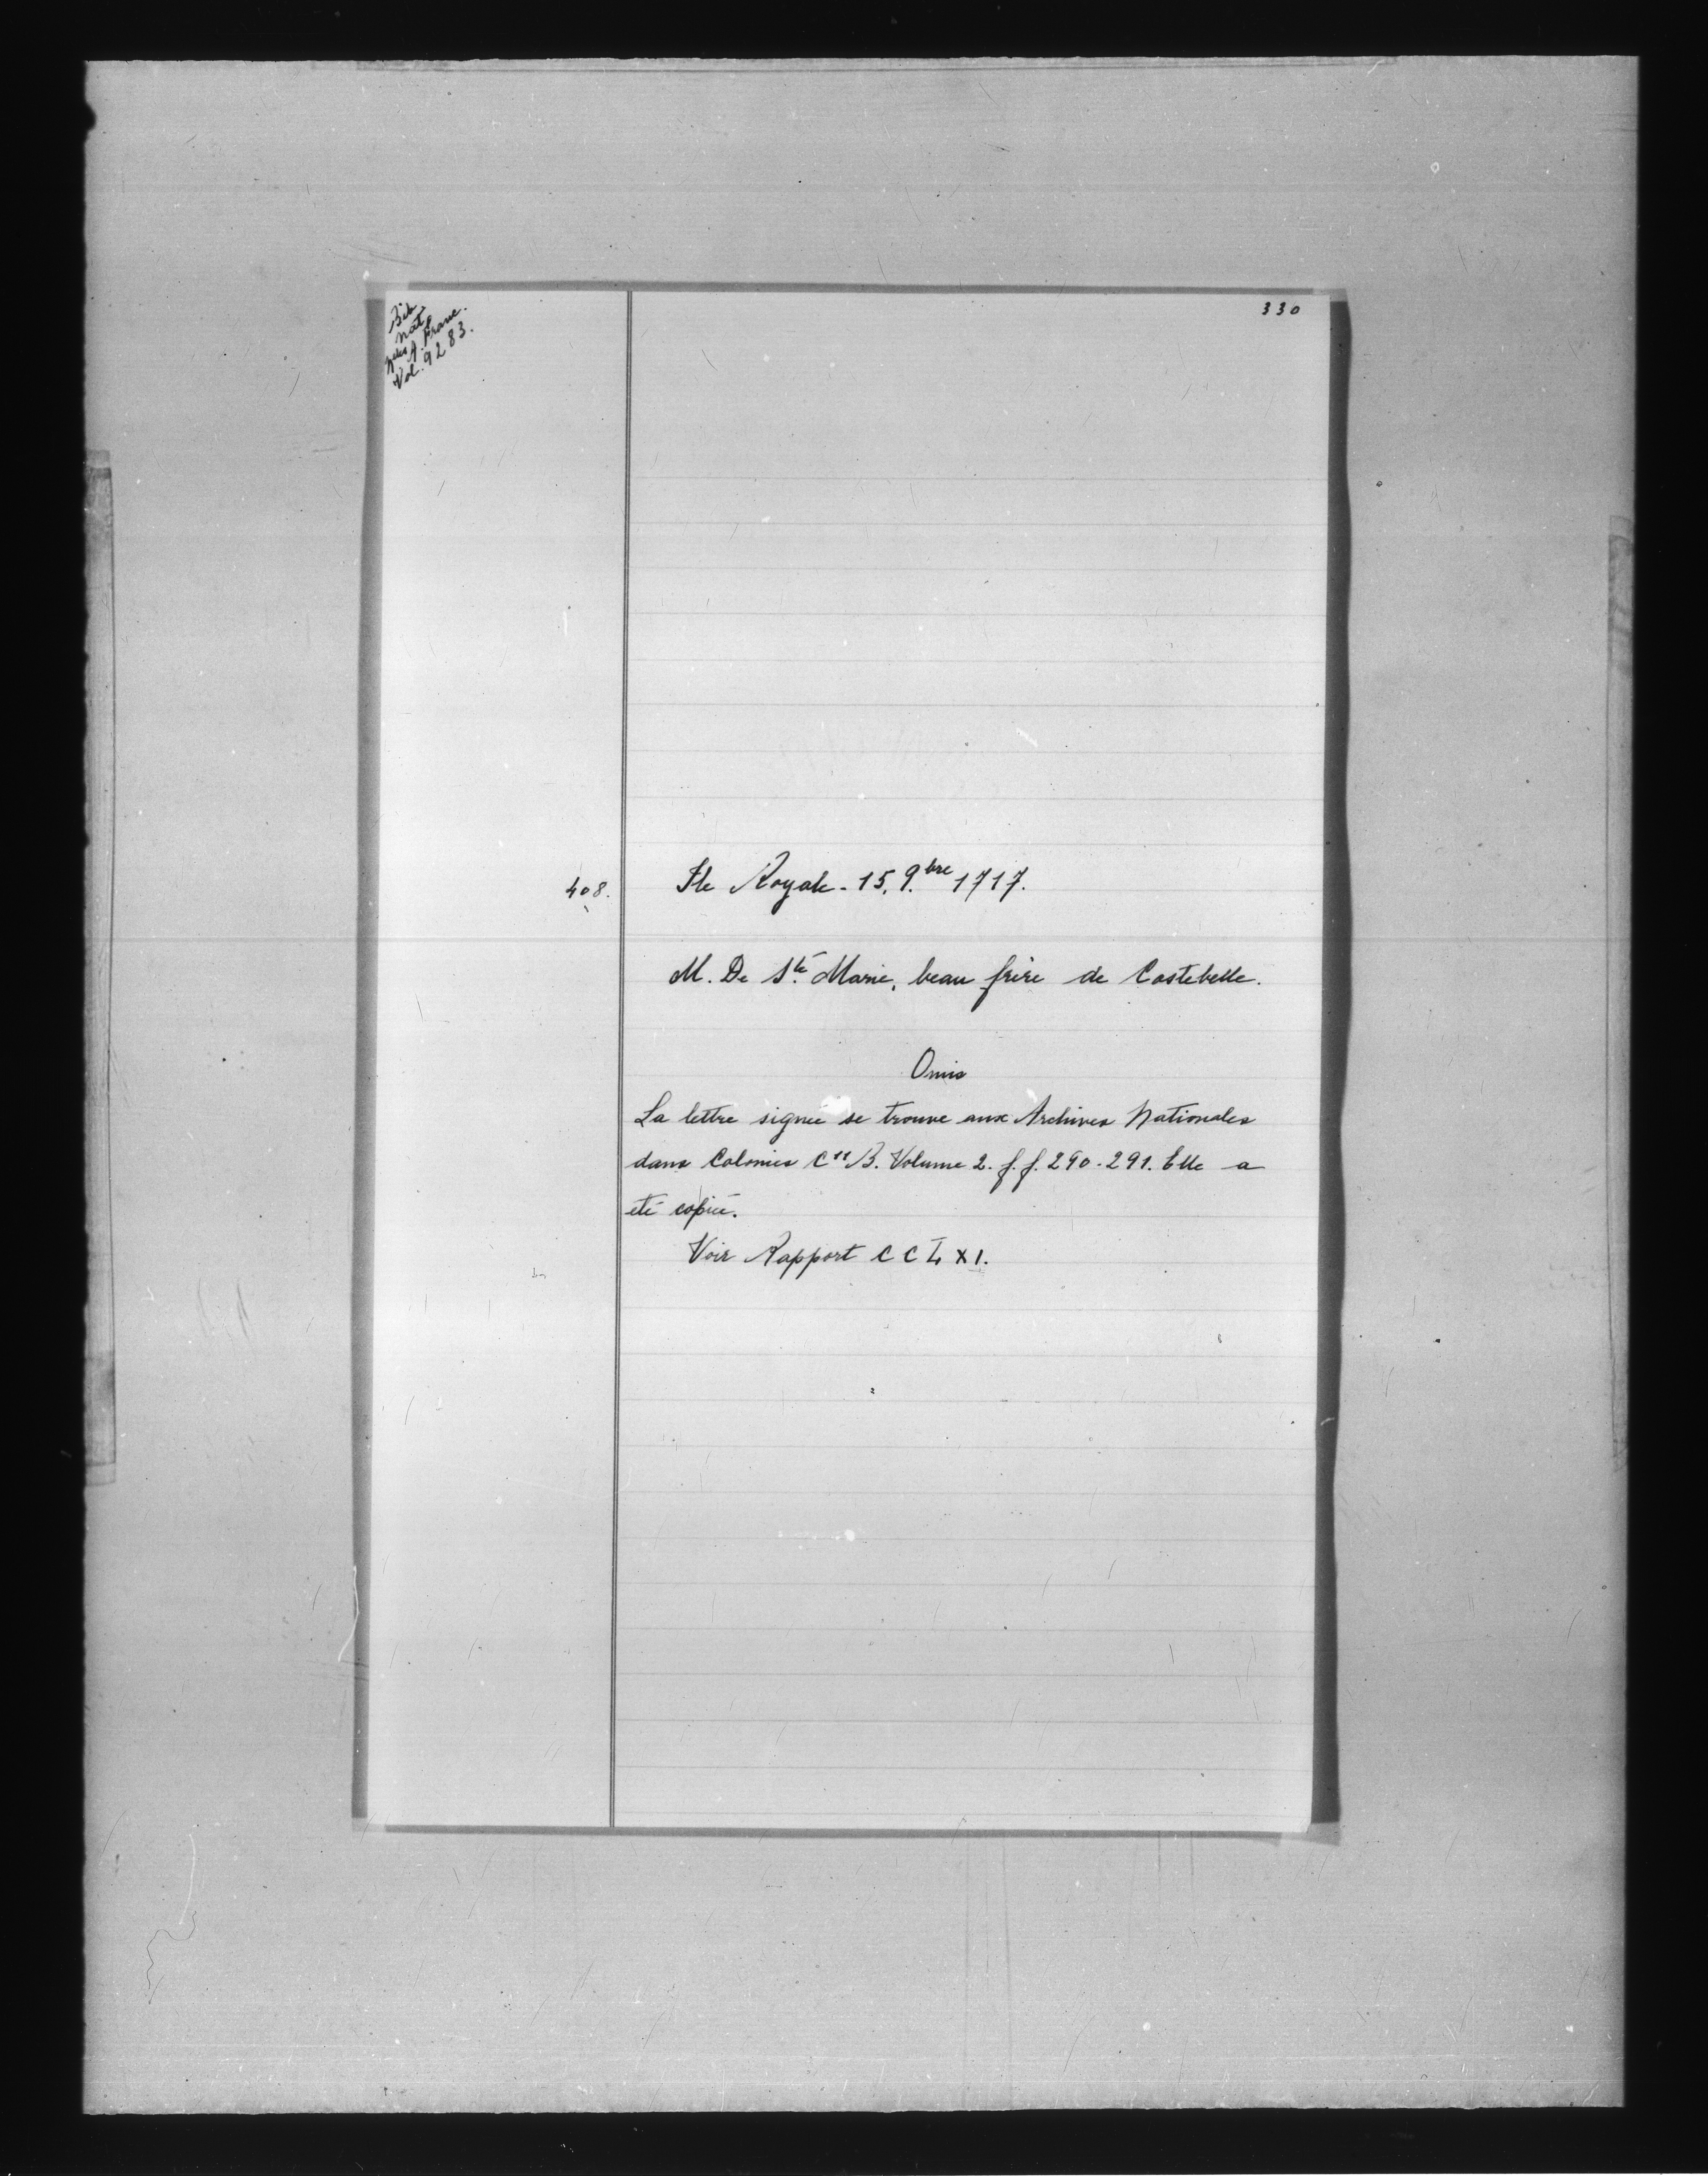 330
Bib
nat
nelles A. Franc.
Vol. 9283.
408. Ile Royale - 15. 9.bre 1717.
M. De Ste Marie, beau frère de Costebelle.
Omis
La lettre signée se trouve aux Archives Nationales
dans Colonies C11 B. Volume 2. f.f. 290-291. Elle a
été copiée.
Voir Rapport CCLXI.